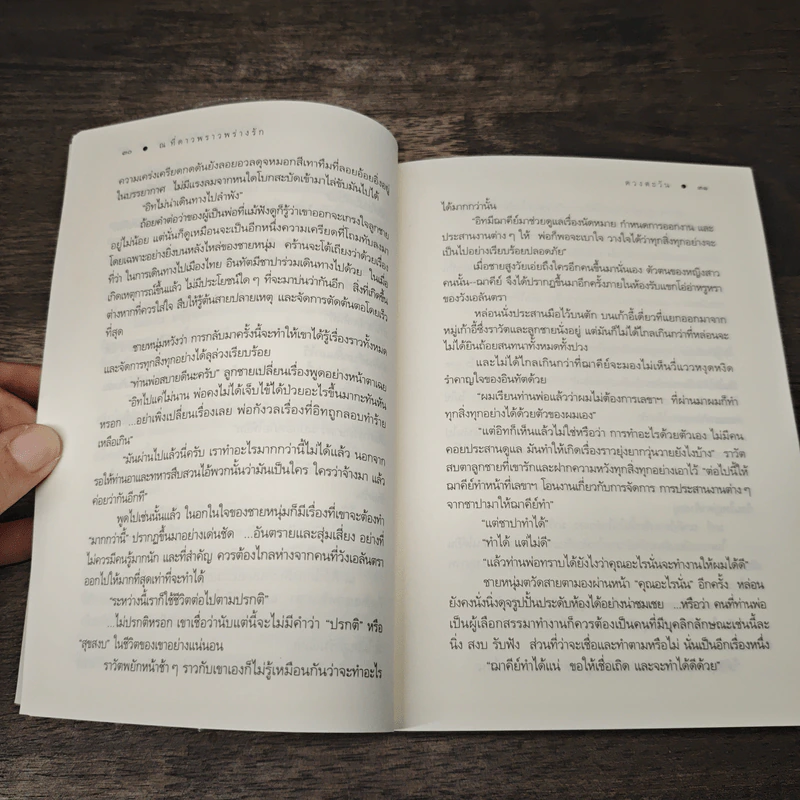 ๓๐ • ณ ที่ดาวพราวพร่างรัก
ความเคร่งเครียดกดดันยังลอยอวลดุจหมอกสีเทาทึมที่ลอยอ้อยอิ่งอยู่
ในบรรยากาศ ไม่มีแรงลมจากไหนโบกสะบัดเข้ามาไล่ขับมันไปได้
"อิทไม่น่าเดินทางไปลำพัง"
ถ้อยคำต่อว่าของผู้เป็นพ่อที่แม้ฟังดูก็รู้ว่าเขาออกจะเกรงใจลูกชาย
อยู่ไม่น้อย แต่นั่นก็ดูเหมือนจะเป็นอีกหนึ่งความเครียดที่โถมทับลงมา
โดยเฉพาะอย่างยิ่งบนหลังไหล่ของชายหนุ่ม คร้านจะโต้เถียงว่าด้วยเรื่อง
ที่ว่า ในการเดินทางไปเมืองไทย อินทัตมีชาปาร่วมเดินทางไปด้วย ในเมื่อ
เกิดเหตุการณ์ขึ้นแล้ว ไม่มีประโยชน์ใด ๆ ที่จะมาบ่นว่ากันอีก สิ่งที่เกิดขึ้น
ต่างหากที่ควรใส่ใจ สืบให้รู้ต้นสายปลายเหตุ และจัดการตัดต้นตอโดยเร็ว
ที่สุด
ชายหนุ่มหวังว่า การกลับมาครั้งนี้จะทำให้เขาได้รู้เรื่องราวทั้งหมด
และจัดการทุกสิ่งทุกอย่างได้ลุล่วงเรียบร้อย
"ท่านพ่อสบายดีนะครับ" ลูกชายเปลี่ยนเรื่องพูดอย่างหน้าตาเฉย
"อิทไปแค่ไม่นาน พ่อคงไม่ได้เจ็บไข้ได้ป่วยอะไรขึ้นมากะทันหัน
หรอก ...อย่าเพิ่งเปลี่ยนเรื่องเลย พ่อกังวลเรื่องที่อิทถูกลอบทำร้าย
เหลือเกิน"
"มันผ่านไปแล้วนี่ครับ เราทำอะไรมากกว่านี้ไม่ได้แล้ว นอกจาก
รอให้ท่านอาและทหารสืบสวนไอ้พวกนั้นว่ามันเป็นใคร ใครว่าจ้างมา แล้ว
ค่อยว่ากันอีกที"
พูดไปเช่นนั้นแล้ว ในอกในใจของชายหนุ่มก็มีเรื่องที่เขาจะต้องทำ
"มากกว่านี้" ปรากฏขึ้นมาอย่างเด่นชัด ...อันตรายและสุ่มเสี่ยง อย่างที่
ไม่ควรมีคนรู้มากนัก และที่สำคัญ ควรต้องไกลห่างจากคนที่วังเอลันตรา
ออกไปให้มากที่สุดเท่าที่จะทำได้
"ระหว่างนี้เราก็ใช้ชีวิตต่อไปตามปรกติ"
...ไม่ปรกติหรอก เขาเชื่อว่านับแต่นี้จะไม่มีคำว่า "ปรกติ" หรือ
"สุขสงบ" ในชีวิตของเขาอย่างแน่นอน
ราวัตพยักหน้าช้า ๆ ราวกับเขาเองก็ไม่รู้เหมือนกันว่าจะทำอะไร
ดวงตะวัน • ๓๑
ได้มากกว่านั้น
"อิทมีฌาคีย์มาช่วยดูแลเรื่องนัดหมาย กำหนดการออกงาน และ
ประสานงานต่าง ๆ ให้ พ่อก็พอจะเบาใจ วางใจได้ว่าทุกสิ่งทุกอย่างจะ
เป็นไปอย่างเรียบร้อยปลอดภัย"
เมื่อชายสูงวัยเอ่ยถึงใครอีกคนขึ้นมานั่นเอง ตัวตนของหญิงสาว
คนนั้น--ฌาคีย์ จึงได้ปรากฏขึ้นมาอีกครั้งภายในห้องรับแขกโอ่อ่าหรูหรา
ของวังเอลันตรา
หล่อนนั่งประสานมือไว้บนตัก บนเก้าอี้เดี่ยวที่แยกออกมาจาก
หมู่เก้าอี้ซึ่งราวัตและลูกชายนั่งอยู่ แต่มันก็ไม่ได้ไกลเกินกว่าที่หล่อนจะ
ไม่ได้ยินถ้อยสนทนาทั้งหมดทั้งปวง
และไม่ได้ไกลเกินกว่าที่ฌาคีย์จะมองไม่เห็นวี่แววหงุดหงิด
รำคาญใจของอินทัตด้วย
"ผมเรียนท่านพ่อแล้วว่าผมไม่ต้องการเลขาฯ ที่ผ่านมาผมก็ทำ
ทุกสิ่งทุกอย่างได้ด้วยตัวของผมเอง"
"แต่อิทก็เห็นแล้วไม่ใช่หรือว่า การทำอะไรด้วยตัวเอง ไม่มีคน
คอยประสานดูแล มันทำให้เกิดเรื่องราวยุ่งยากวุ่นวายยังไงบ้าง" ราวัต
สบตาลูกชายที่เขารักและฝากความหวังทุกสิ่งทุกอย่างเอาไว้ "ต่อไปนี้ให้
ฌาคีย์ทำหน้าที่เลขาฯ โอนงานเกี่ยวกับการจัดการ การประสานงานต่าง ๆ
จากชาปามาให้ฌาคีย์ทำ"
"แต่ชาปาทำได้"
"ทำได้ แต่ไม่ดี"
"แล้วท่านพ่อทราบได้ยังไงว่าคุณอะไรนั่นจะทำงานให้ผมได้ดี"
ชายหนุ่มตวัดสายตามองผ่านหน้า "คุณอะไรนั่น" อีกครั้ง หล่อน
ยังคงนั่งนิ่งดุจรูปปั้นประดับห้องได้อย่างน่าชมเชย ...หรือว่า คนที่ท่านพ่อ
เป็นผู้เลือกสรรมาทำงานก็ควรต้องเป็นคนที่มีบุคลิกลักษณะเช่นนี้ละ
นิ่ง สงบ รับฟัง ส่วนที่ว่าจะเชื่อและทำตามหรือไม่ นั่นเป็นอีกเรื่องหนึ่ง
"ฌาคีย์ทำได้แน่ ขอให้เชื่อเถิด และจะทำได้ดีด้วย"